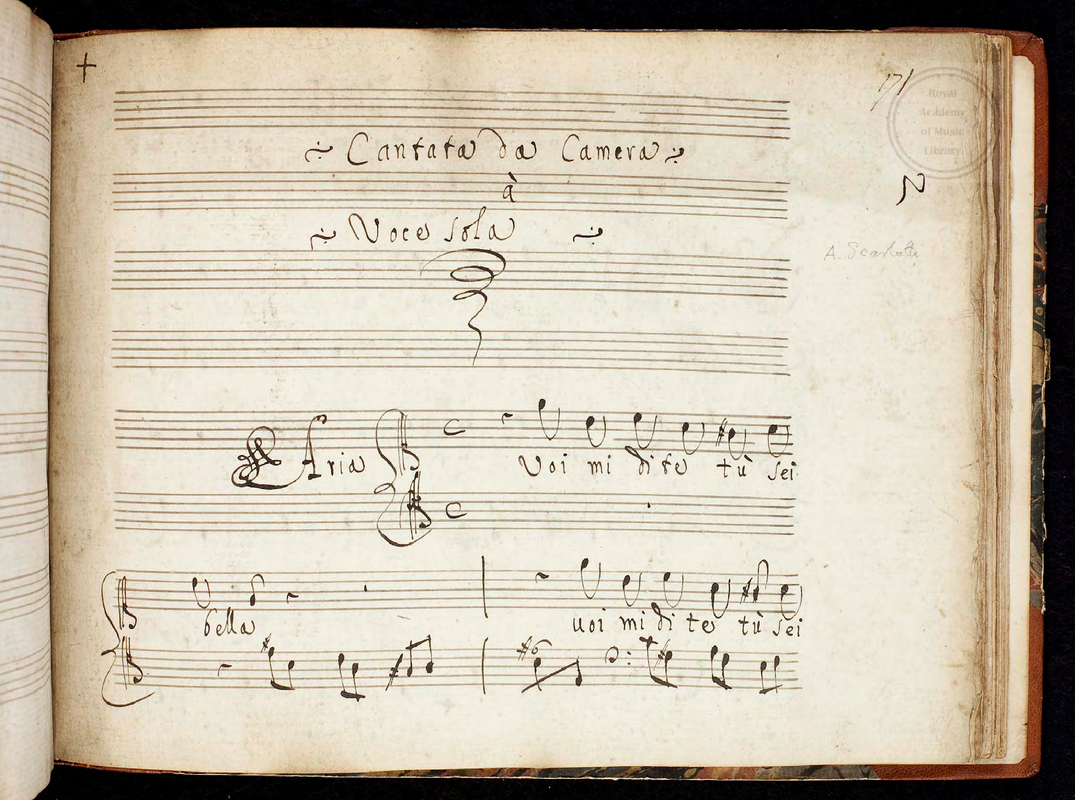 171
Royal
Academy
of Music
Library
Cantata da Camera
à
2
Voce sola
A. Scarlatti
Aria
Voi mi dite tù sei
bella
uoi mi dite tù sei
6